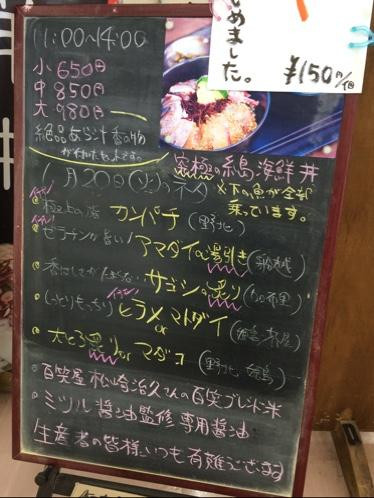 じめました。
¥150円/個
11:00〜14:00
小 650円
中 850円
大 980円
絶品あら汁香の物
が付いたセットです。
究極の糸島海鮮丼
月20日(火)のネタ
※下の魚が全部
乗っています。
極上の
カンパチ
(野北)
ゼラチンが旨い!
アマダイの湯引き
(船越)
サゴシの炙り
(加布里)
しっとりもっちり
ヒラメ or マトダイ
大とろ炙り or マダコ
(野北
百笑屋 松崎治久さんの百笑ブレンド米
ミツル醤油監修 専用醤油
生産者の皆様、いつも有難うございます